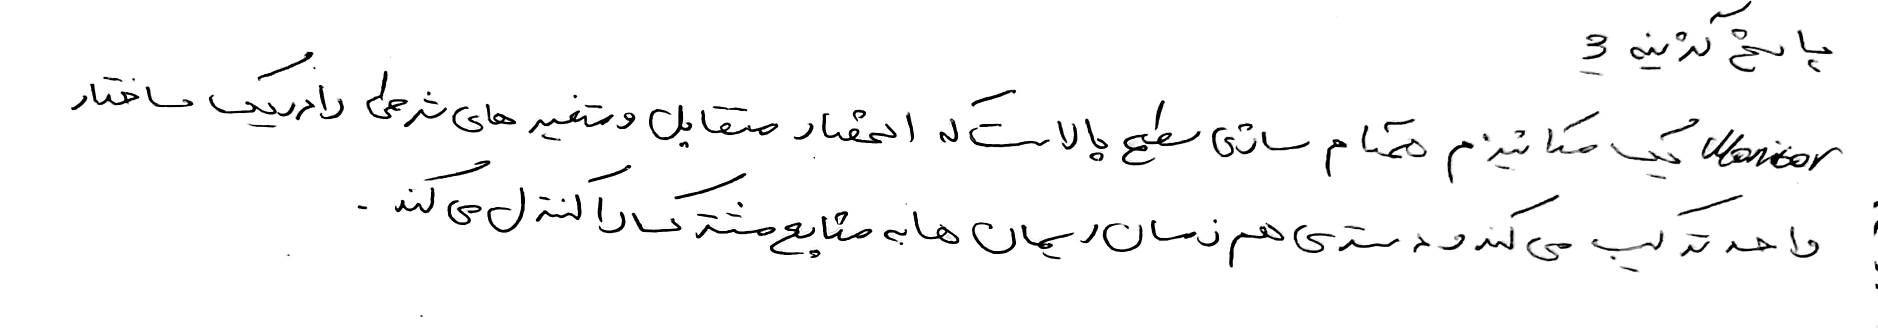 پاسخ گزینه 3
Monitor یک مکانیزم همگام سازی سطح بالاست که انحصار متقابل و متغیر های شرطی را در یک ساختار
واحد ترکیب می کند و دسترسی هم زمان ریسمان ها به منابع مشترک را کنترل می کند .